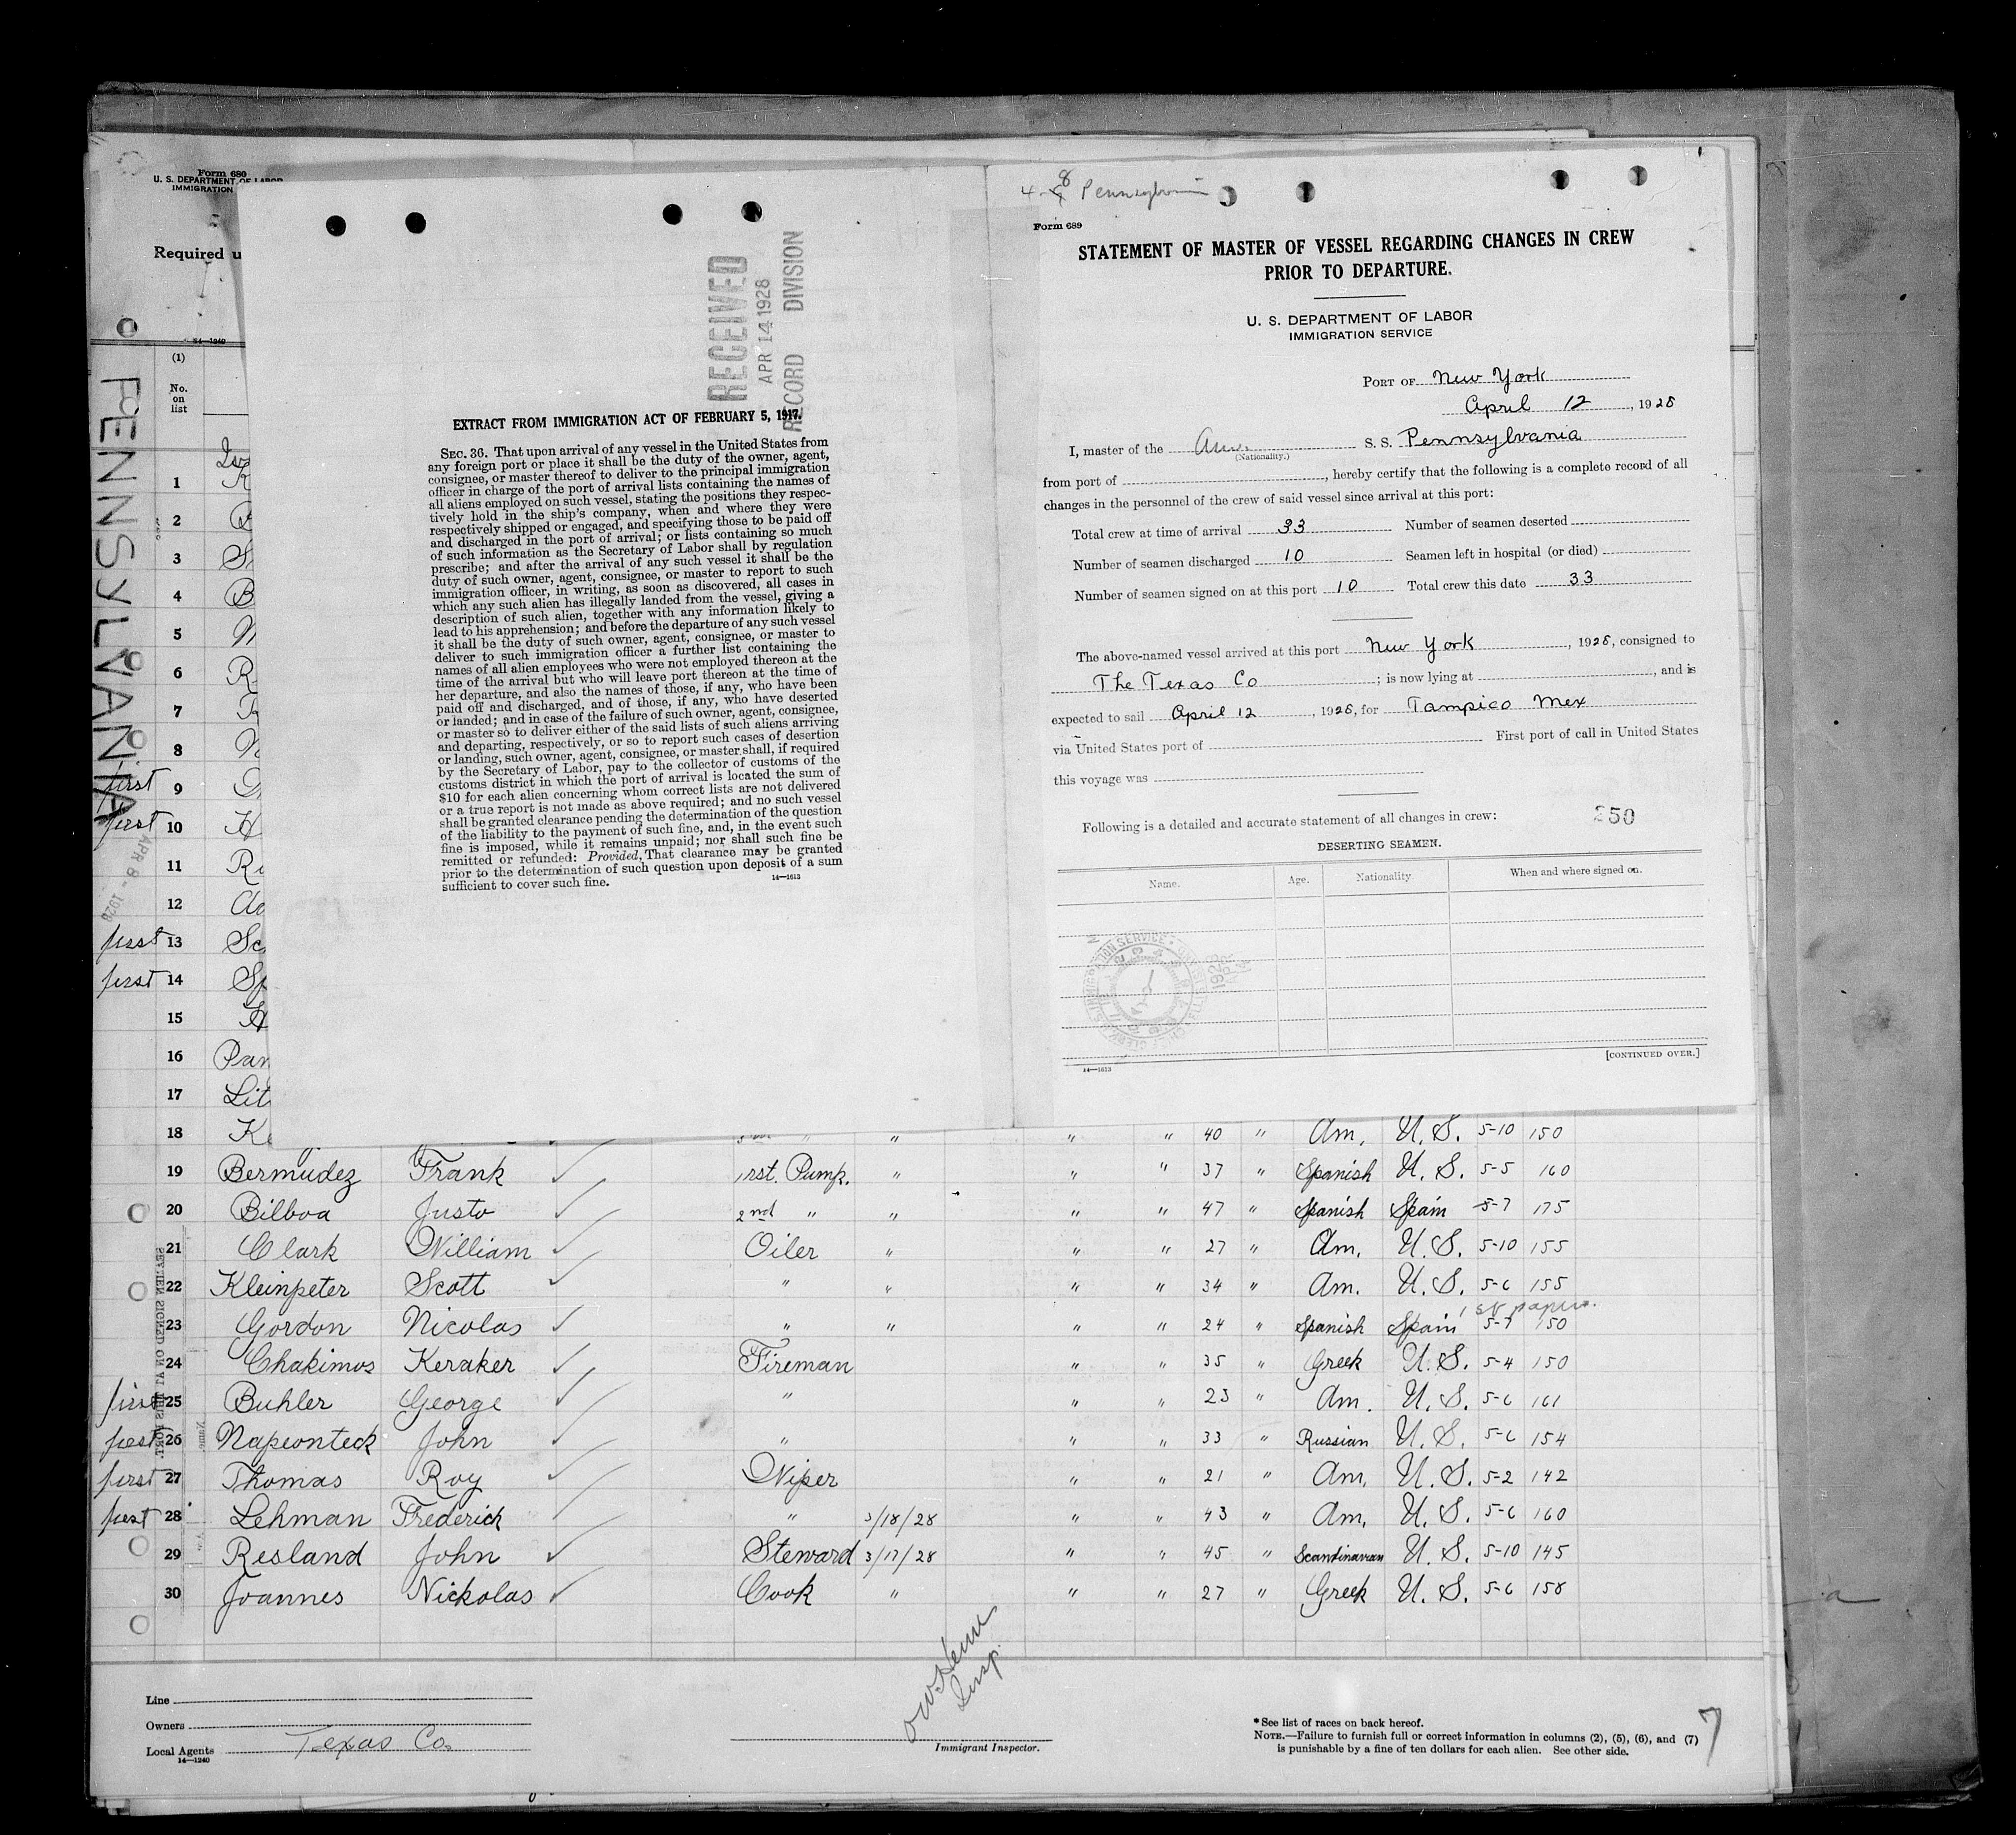 Form 680
U. S. DEPARTMENT OF LABOR
IMMIGRATION
Required u
14—1240
(1)
No.
on
list
PENNSYLVANIA
APR 8 - 1928
1 K
2
3 S
4 B
5
6 R
7
8
first 9
first 10 H
11 R
12
first 13 Sc
first 14 Sp
15 H
16 Pan
17 Lit
18 Ke " " " 40 " Am. U. S. 5-10 150
19 Bermudez Frank 1rst. Pump. " " " 37 " Spanish U. S. 5-5 160
20 Bilboa Justo 2nd " " " " 47 " Spanish Spain 5-7 175
21 Clark William Oiler " " " 27 " Am. U. S. 5-10 155
22 Kleinpeter Scott " " " " 34 " Am. U. S. 5-6 155
1st papers.
23 Gordon Nicolas " " " " 24 " Spanish Spain 5-7 150
24 Chakimos Keraker Fireman " " 35 " Greek U. S. 5-4 150
first 25 Buhler George " " " 23 " Am. U. S. 5-6 161
first 26 Napionteck John " " " 33 " Russian U. S. 5-6 154
first 27 Thomas Roy Wiper " " 21 " Am. U. S. 5-2 142
first 28 Lehman Frederick " 3/18/28 " " 43 " Am. U. S. 5-6 160
29 Resland John Steward 3/17/28 " " 45 " Scandinavian U. S. 5-10 145
30 Joannes Nickolas Cook " " " 27 " Greek U. S. 5-6 158
SEAMEN SIGNED ON AT THIS PORT.
Name.
Line
Owners
Local Agents Texas Co.
14—1240
Insp.
Immigrant Inspector.
*See list of races on back hereof.
NOTE.—Failure to furnish full or correct information in columns (2), (5), (6), and (7)
is punishable by a fine of ten dollars for each alien. See other side.
7
RECEIVED
APR 14 1928
RECORD DIVISION
EXTRACT FROM IMMIGRATION ACT OF FEBRUARY 5, 1917.
SEC. 36. That upon arrival of any vessel in the United States from
any foreign port or place it shall be the duty of the owner, agent,
consignee, or master thereof to deliver to the principal immigration
officer in charge of the port of arrival lists containing the names of
all aliens employed on such vessel, stating the positions they respec-
tively hold in the ship's company, when and where they were
respectively shipped or engaged, and specifying those to be paid off
and discharged in the port of arrival; or lists containing so much
of such information as the Secretary of Labor shall by regulation
prescribe; and after the arrival of any such vessel it shall be the
duty of such owner, agent, consignee, or master to report to such
immigration officer, in writing, as soon as discovered, all cases in
which any such alien has illegally landed from the vessel, giving a
description of such alien, together with any information likely to
lead to his apprehension; and before the departure of any such vessel
it shall be the duty of such owner, agent, consignee, or master to
deliver to such immigration officer a further list containing the
names of all alien employees who were not employed thereon at the
time of the arrival but who will leave port thereon at the time of
her departure, and also the names of those, if any, who have been
paid off and discharged, and of those, if any, who have deserted
or landed; and in case of the failure of such owner, agent, consignee,
or master so to deliver either of the said lists of such aliens arriving
and departing, respectively, or so to report such cases of desertion
or landing, such owner, agent, consignee, or master shall, if required
by the Secretary of Labor, pay to the collector of customs of the
customs district in which the port of arrival is located the sum of
$10 for each alien concerning whom correct lists are not delivered
or a true report is not made as above required; and no such vessel
shall be granted clearance pending the determination of the question
of the liability to the payment of such fine, and, in the event such
fine is imposed, while it remains unpaid; nor shall such fine be
remitted or refunded: Provided, That clearance may be granted
prior to the determination of such question upon deposit of a sum
sufficient to cover such fine.
14—1613
4-8 Pennsylvania
Form 689
STATEMENT OF MASTER OF VESSEL REGARDING CHANGES IN CREW
PRIOR TO DEPARTURE.
U. S. DEPARTMENT OF LABOR
IMMIGRATION SERVICE
PORT OF New York
April 12, 1928
I, master of the Am. S. S. Pennsylvania
(Nationality.)
from port of , hereby certify that the following is a complete record of all
changes in the personnel of the crew of said vessel since arrival at this port:
Total crew at time of arrival 33 Number of seamen deserted
Number of seamen discharged 10 Seamen left in hospital (or died)
Number of seamen signed on at this port 10 Total crew this date 33
The above-named vessel arrived at this port New York, 1928, consigned to
The Texas Co; is now lying at , and is
expected to sail April 12, 1928, for Tampico Mex
via United States port of First port of call in United States
this voyage was
350
Following is a detailed and accurate statement of all changes in crew:
DESERTING SEAMEN.
Name. Age. Nationality. When and where signed on.
1928
[CONTINUED OVER.]
14—1613